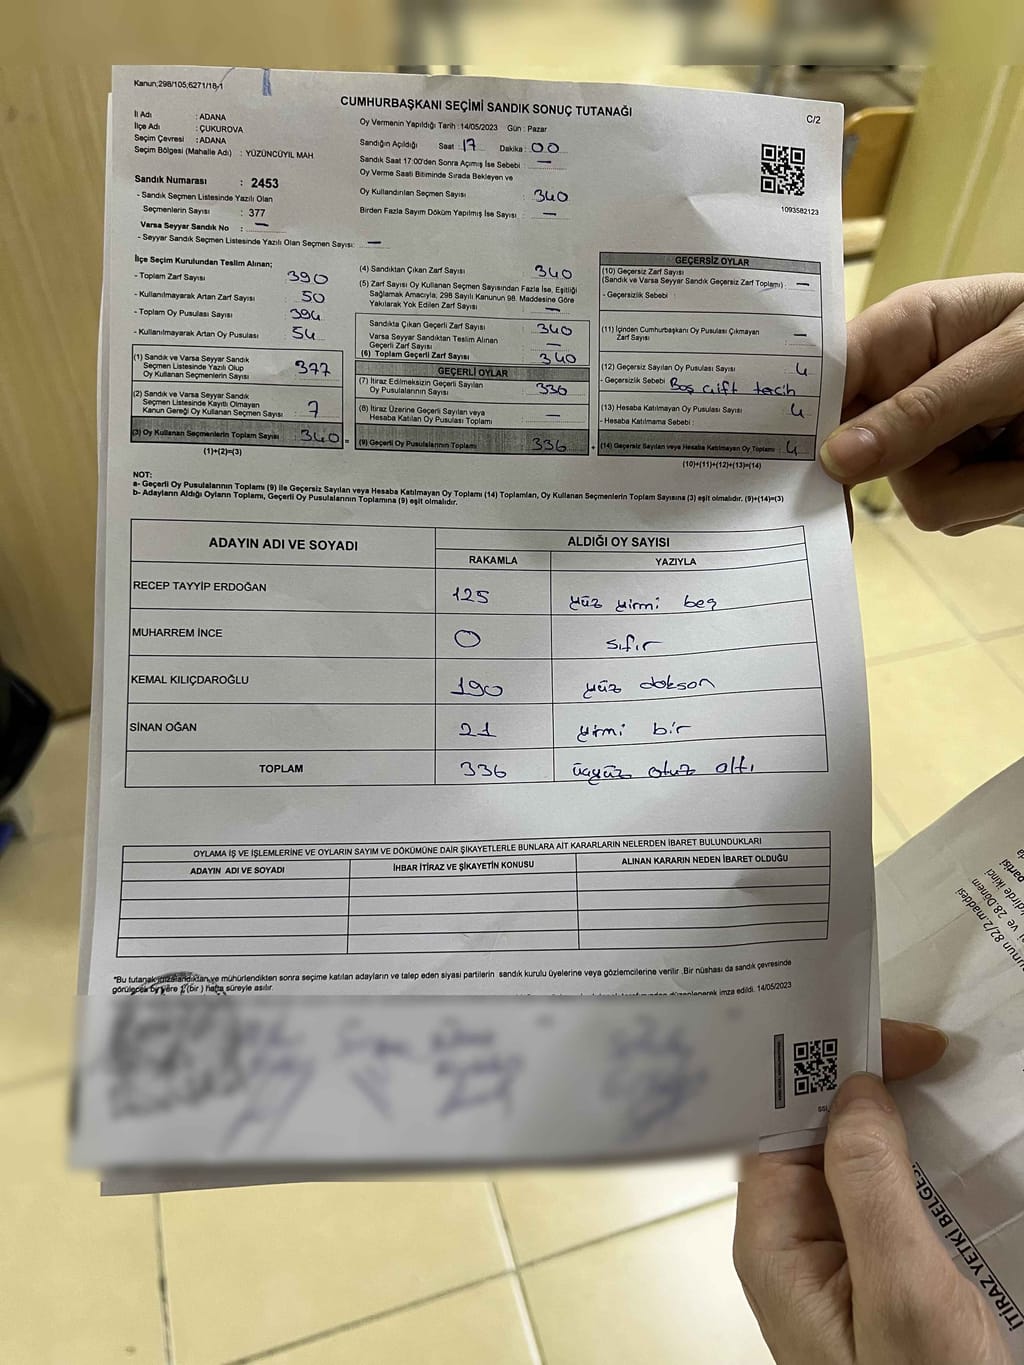 Kanun;298/105;6271/18-1
CUMHURBAŞKANI SEÇİMİ SANDIK SONUÇ TUTANAĞI
C/2
İl Adı : ADANA
İlçe Adı : ÇUKUROVA
Seçim Çevresi : ADANA
Seçim Bölgesi (Mahalle Adı) : YÜZÜNCÜYIL MAH
Sandık Numarası : 2453
- Sandık Seçmen Listesinde Yazılı Olan
Seçmenlerin Sayısı : 377
Varsa Seyyar Sandık No : —
- Seyyar Sandık Seçmen Listesinde Yazılı Olan Seçmen Sayısı: —
Oy Vermenin Yapıldığı Tarih :14/05/2023 Gün : Pazar
Sandığın Açıldığı Saat : 17 Dakika : 00
Sandık Saat 17:00'den Sonra Açımış İse Sebebi : —
Oy Verme Saati Bitiminde Sırada Bekleyen ve
Oy Kullandırılan Seçmen Sayısı : 340
Birden Fazla Sayım Döküm Yapılmış İse Sayısı : —
1093582123
İlçe Seçim Kurulundan Teslim Alınan;
- Toplam Zarf Sayısı : 390
- Kullanılmayarak Artan Zarf Sayısı : 50
- Toplam Oy Pusulası Sayısı : 394
- Kullanılmayarak Artan Oy Pusulası : 54
(1) Sandık ve Varsa Seyyar Sandık
Seçmen Listesinde Yazılı Olup
Oy Kullanan Seçmenlerin Sayısı : 377
(2) Sandık ve Varsa Seyyar Sandık
Seçmen Listesinde Kayıtlı Olmayan
Kanun Gereği Oy Kullanan Seçmen Sayısı : 7
(3) Oy Kullanan Seçmenlerin Toplam Sayısı : 340 =
(1)+(2)=(3)
(4) Sandıktan Çıkan Zarf Sayısı : 340
(5) Zarf Sayısı Oy Kullanan Seçmen Sayısından Fazla İse, Eşitliği
Sağlamak Amacıyla, 298 Sayılı Kanunun 98. Maddesine Göre
Yakılarak Yok Edilen Zarf Sayısı : —
Sandıkta Çıkan Geçerli Zarf Sayısı : 340
Varsa Seyyar Sandıktan Teslim Alınan
Geçerli Zarf Sayısı : —
(6) Toplam Geçerli Zarf Sayısı : 340
GEÇERLİ OYLAR
(7) İtiraz Edilmeksizin Geçerli Sayılan
Oy Pusulalarının Sayısı : 336
(8) İtiraz Üzerine Geçerli Sayılan veya
Hesaba Katılan Oy Pusulası Toplamı : —
(9) Geçerli Oy Pusulalarının Toplamı : 336 +
GEÇERSİZ OYLAR
(10) Geçersiz Zarf Sayısı
(Sandık ve Varsa Seyyar Sandık Geçersiz Zarf Toplamı) : —
- Geçersizlik Sebebi :
(11) İçinden Cumhurbaşkanı Oy Pusulası Çıkmayan
Zarf Sayısı : —
(12) Geçersiz Sayılan Oy Pusulası Sayısı : 4
- Geçersizlik Sebebi : Boş çift tercih
(13) Hesaba Katılmayan Oy Pusulası Sayısı : 4
- Hesaba Katılmama Sebebi :
(14) Geçersiz Sayılan veya Hesaba Katılmayan Oy Toplamı : 4
(10)+(11)+(12)+(13)=(14)
NOT:
a- Geçerli Oy Pusulalarının Toplamı (9) ile Geçersiz Sayılan veya Hesaba Katılmayan Oy Toplamı (14) Toplamları, Oy Kullanan Seçmenlerin Toplam Sayısına (3) eşit olmalıdır. (9)+(14)=(3)
b- Adayların Aldığı Oyların Toplamı, Geçerli Oy Pusulalarının Toplamına (9) eşit olmalıdır.
ADAYIN ADI VE SOYADI ALDIĞI OY SAYISI
RAKAMLA YAZIYLA
RECEP TAYYİP ERDOĞAN 125 yüz yirmi beş
MUHARREM İNCE 0 sıfır
KEMAL KILIÇDAROĞLU 190 yüz doksan
SİNAN OĞAN 21 yirmi bir
TOPLAM 336 üçyüz otuz altı
OYLAMA İŞ VE İŞLEMLERİNE VE OYLARIN SAYIM VE DÖKÜMÜNE DAİR ŞİKAYETLERLE BUNLARA AİT KARARLARIN NELERDEN İBARET BULUNDUKLARI
ADAYIN ADI VE SOYADI İHBAR İTİRAZ VE ŞİKAYETİN KONUSU ALINAN KARARIN NEDEN İBARET OLDUĞU
*Bu tutanak imzalandıktan ve mühürlendikten sonra seçime katılan adayların ve talep eden siyasi partilerin sandık kurulu üyelerine veya gözlemcilerine verilir .Bir nüshası da sandık çevresinde
görülecek bir yere 1 (bir ) hafta süreyle asılır.
düzenlenerek imza edildi. 14/05/2023
nunun 82/2.maddesi
ve 28.Dönem
dirde ikinci
partisi
İTİRAZ YETKİ BELGESİ